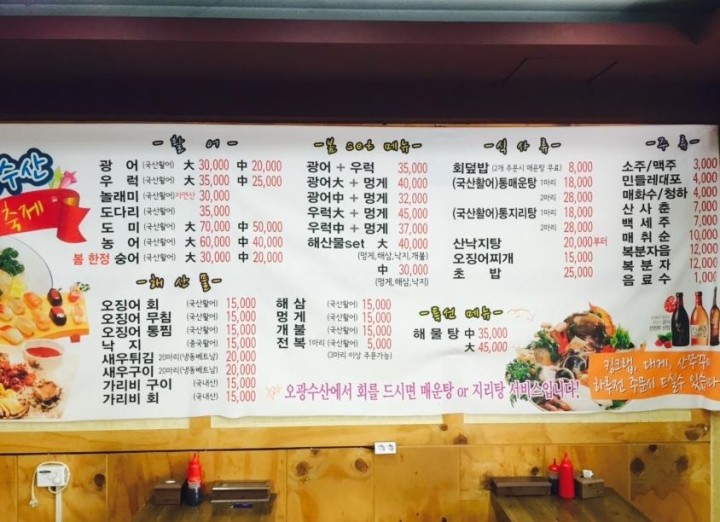 수산
축제
- 활 어 -
광 어 (국산활어) 大 30,000 中 20,000
우 럭 (국산활어) 大 35,000 中 25,000
놀래미 (국산활어) 자연산 30,000
도다리 (국산활어) 35,000
도 미 (국산활어) 大 70,000 中 50,000
농 어 (국산활어) 大 60,000 中 40,000
봄 한정 숭어 (국산활어) 大 30,000 中 20,000
- 봄 set 메뉴 -
광어 + 우럭 35,000
광어大 + 멍게 40,000
광어中 + 멍게 32,000
우럭大 + 멍게 45,000
우럭中 + 멍게 37,000
해산물set 大 40,000
(멍게,해삼,낙지,개불)
中 30,000
(멍게,해삼,낙지)
- 식 사 류 -
회덮밥 (2개 주문시 매운탕 무료) 8,000
(국산활어)통매운탕 1마리 18,000
2마리 28,000
(국산활어)통지리탕 1마리 18,000
2마리 28,000
산낙지탕 20,000부터
오징어찌개 15,000
초 밥 25,000
- 주 류 -
소주/맥주 3,000
민들레대포 4,000
매화수/청하 4,000
산 사 춘 7,000
백 세 주 7,000
매 취 순 10,000
복분자음 10,000
복 분 자 12,000
음 료 수 1,000
- 해 산 물 -
오징어 회 (국산활어) 15,000
오징어 무침 (국산활어) 15,000
오징어 통찜 (국산활어) 15,000
낙 지 (중국활어) 15,000
새우튀김 20마리(냉동베트남) 20,000
새우구이 20마리(냉동베트남) 20,000
가리비 구이 (국내산) 15,000
가리비 회 (국내산) 15,000
해 삼 (국산활어) 15,000
멍 게 (국산활어) 15,000
개 불 (국산활어) 15,000
전 복 1마리 (국산활어) 5,000
(3마리 이상 주문가능)
- 특선 메뉴 -
해 물 탕 中 35,000
大 45,000
오광수산에서 회를 드시면 매운탕 or 지리탕 서비스입니다!
킹크랩, 대게, 산쭈꾸미
하루전 주문시 드실수 있습니다